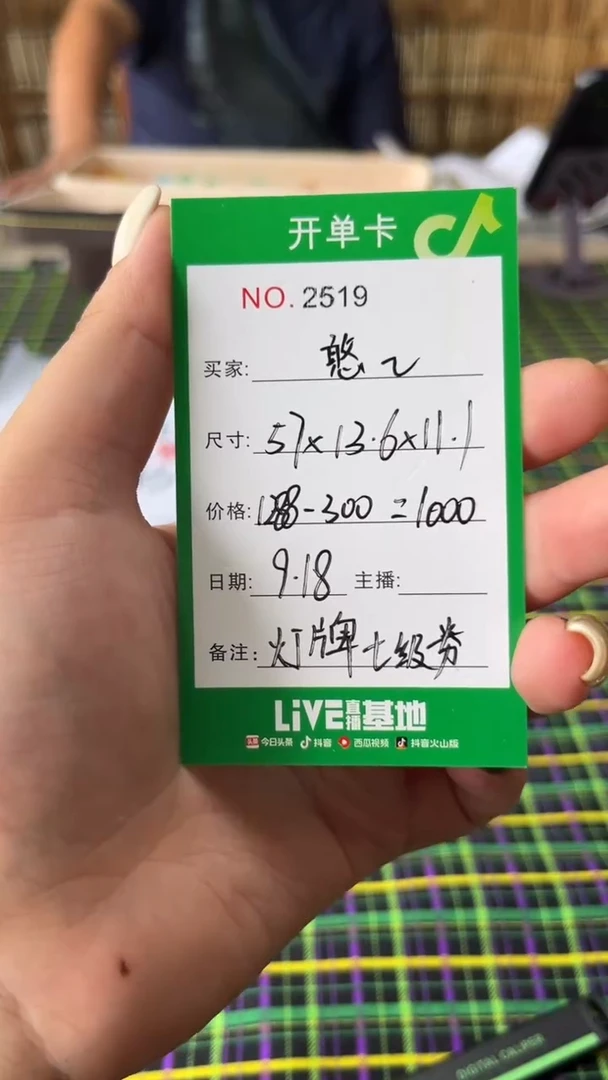 开单卡
NO. 2519
买家: 憨乙
尺寸: 57×13.6×11.1
价格: 1288-300=1000
日期: 9.18 主播:
备注: 灯牌七级劵
LiVE直播基地
头条 今日头条 抖音 西瓜视频 抖音火山版
DIGITAL CALIPER